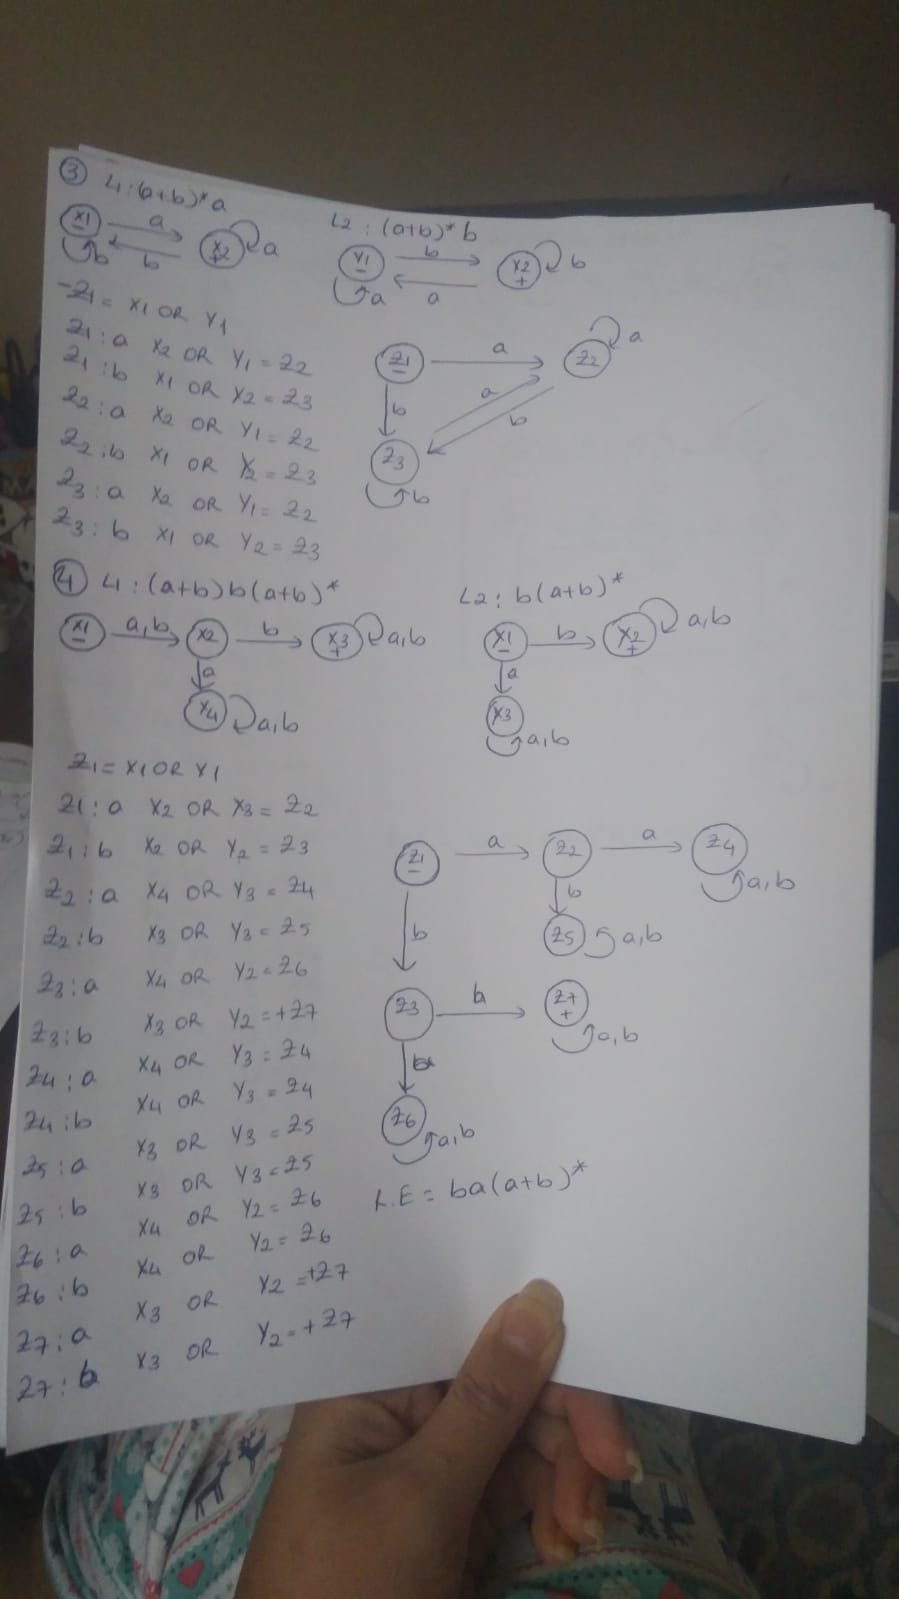 ③ L1: (b+b)*a
L2: (a+b)*b
x1 - a b b x2 + a
y1 - b a a x2 + b
-z1 = x1 OR y1
z1: a x2 OR y1 = z2
z1: b x1 OR x2 = z3
z2: a x2 OR y1 = z2
z2: b x1 OR y2 = z3
z3: a x2 OR y1 = z2
z3: b x1 OR y2 = z3
z1 - a z2 a
b a b
z3 b
④ L1: (a+b)b(a+b)*
L2: b(a+b)*
x1 - a,b x2 b x3 + a,b
a
x4 a,b
x1 - b x2 + a,b
a
x3 a,b
z1 = x1 OR x1
z1: a x2 OR x3 = z2
z1: b x2 OR y2 = z3
z2: a x4 OR y3 = z4
z2: b x3 OR y3 = z5
z3: a x4 OR y2 = z6
z3: b x3 OR y2 = +z7
z4: a x4 OR y3 = z4
z4: b x4 OR y3 = z4
z5: a x3 OR y3 = z5
z5: b x3 OR y3 = z5
z6: a x4 OR y2 = z6
z6: b x4 OR y2 = z6
z7: a x3 OR y2 = +z7
z7: b x3 OR y2 = +z7
z1 - a z2 a z4 a,b
b b
z5 a,b
z3 b z7 + a,b
z6 a,b
R.E = ba(a+b)*